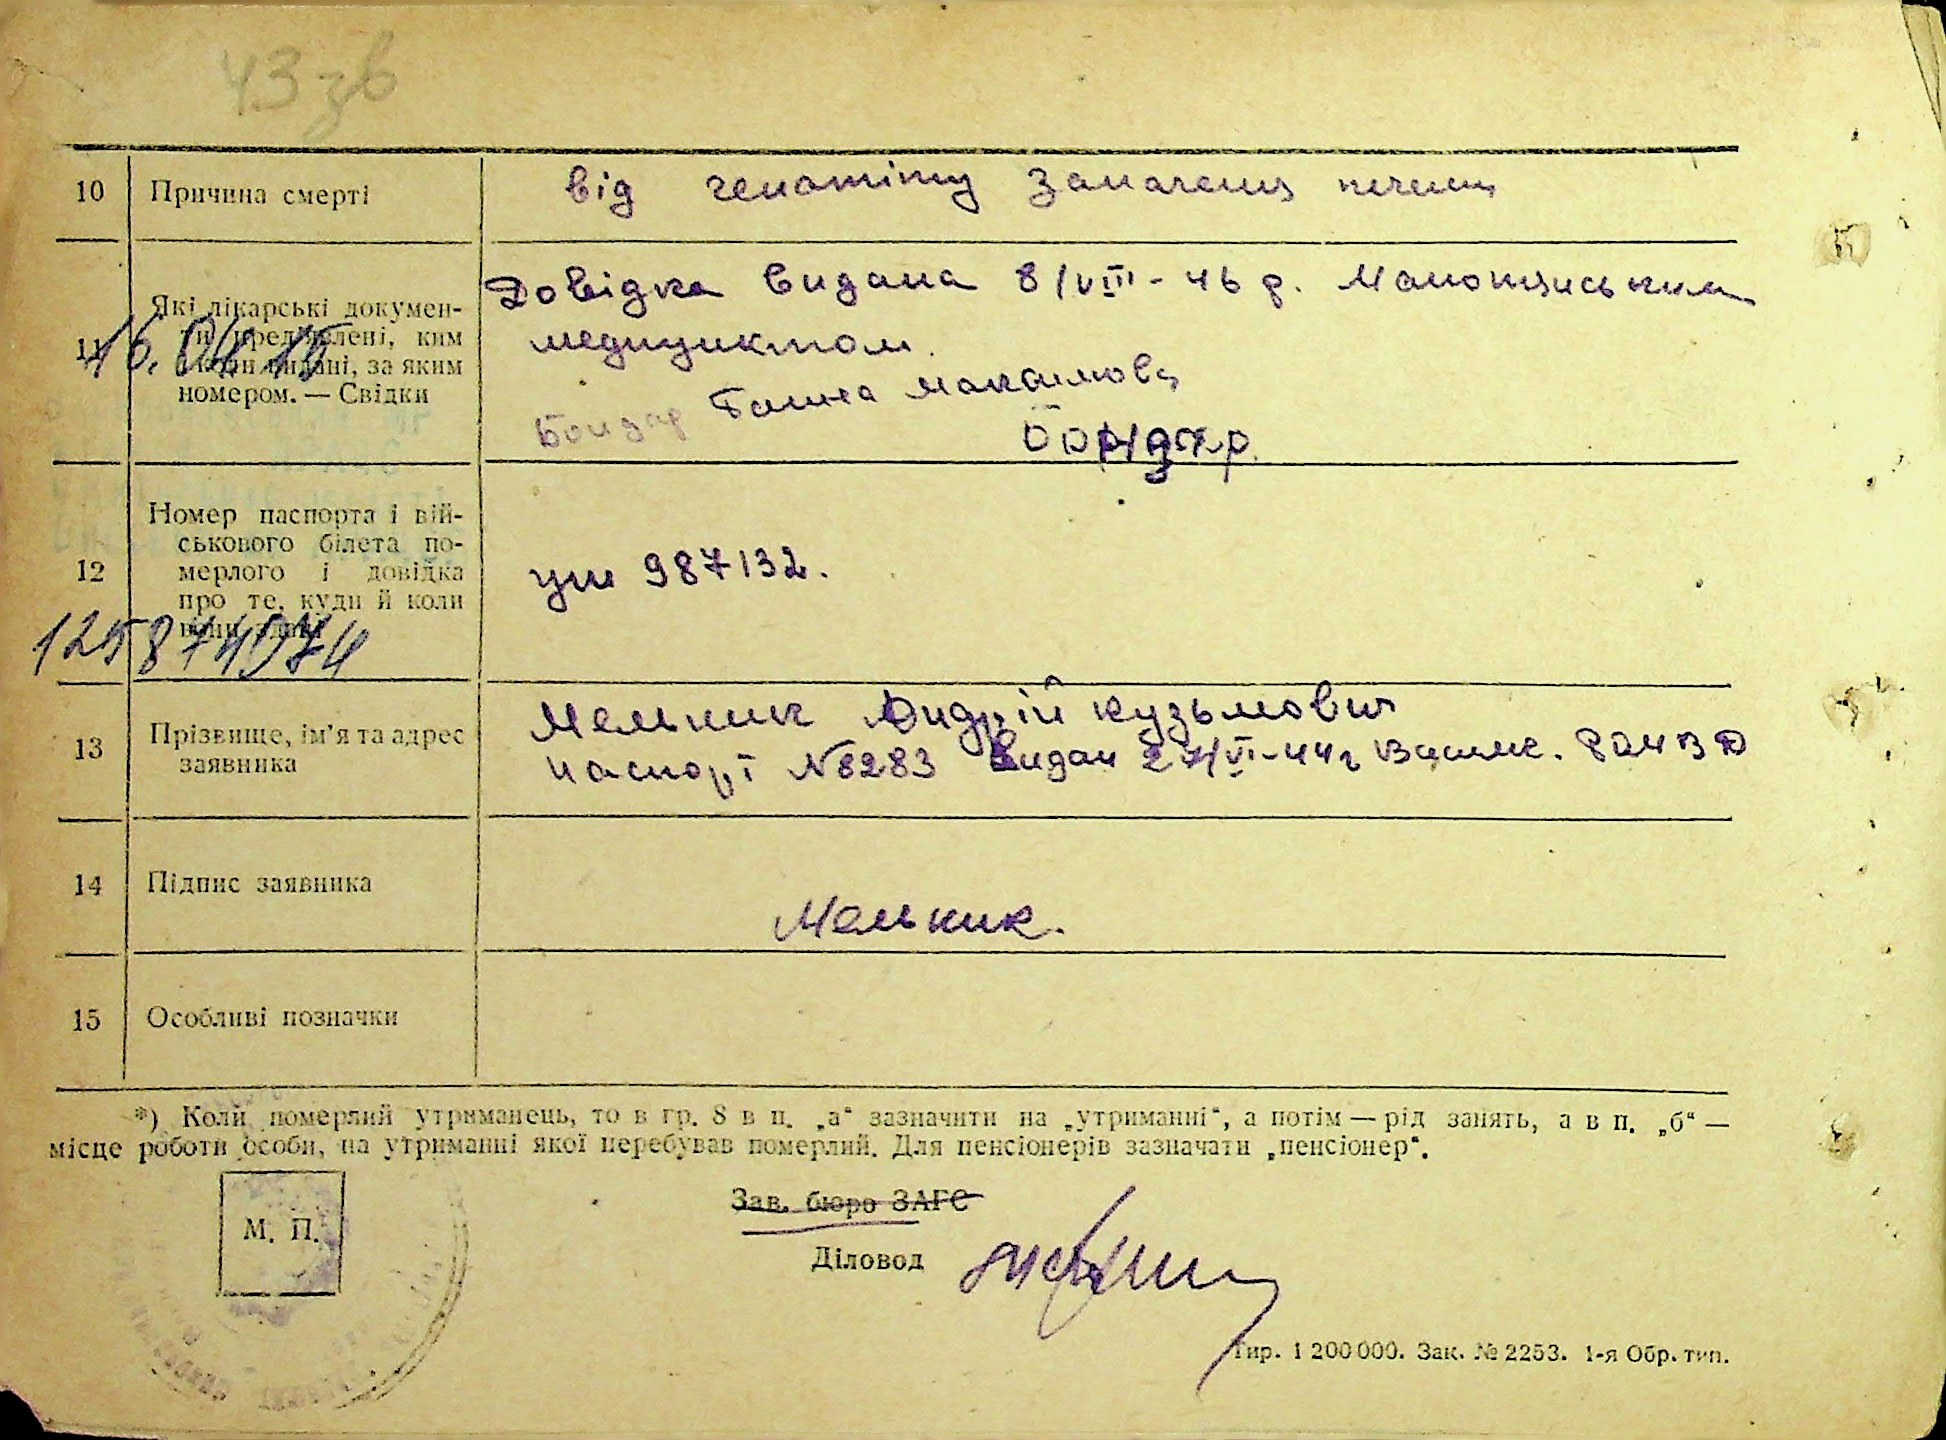 43 зв
10 Причина смерті від гепатіту Запалення печені
11 Які лікарські документи пред'явлені, ким і коли видані, за яким номером. — Свідки
Довідка видана 8/VIII-46 р.
медпунктом.
Бондар Ганна Максимова
Бондар
16.04.15
12 Номер паспорта і військового білета померлого і довідка про те, куди й коли вони здані
987132.
1258741974
13 Прізвище, ім'я та адрес заявника
Мельник Андрій Кузьмович
паспорт №8283 видан 27/VI-44г
14 Підпис заявника Мельник.
15 Особливі позначки
*) Коли померлий утриманець, то в гр. 8 в п. „а“ зазначити на „утриманні“, а потім — рід занять, а в п. „б“ —
місце роботи особи, на утриманні якої перебував померлий. Для пенсіонерів зазначати „пенсіонер“.
М. П.
Зав. бюро ЗАГС
Діловод
Тир. 1 200 000. Зак. № 2253. 1-я Обр. тип.